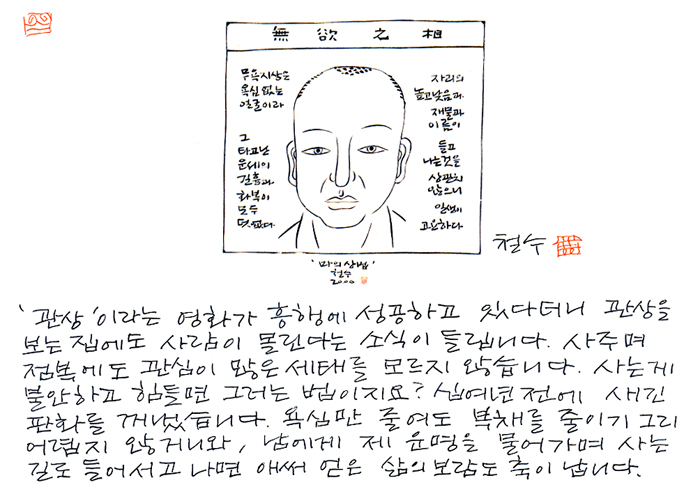 無欲之相
무욕지상은
욕심 없는
얼굴이라
그
타고난
운세의
길흉과
화복이
모두
덧없다.
자리의
높고낮음과
재물과
이름이
들고
나는것을
상관치
않으니
일생이
고요하다.
'마의상법'
철수
2000
철수
'관상'이라는 영화가 흥행에 성공하고 있다더니 관상을
보는 집에도 사람이 몰린다는 소식이 들립니다. 사주며
점복에도 관심이 많은 세태를 모르지 않습니다. 사는게
불안하고 힘들면 그러는 법이지요? 십여년 전에 새긴
판화를 꺼냈습니다. 욕심만 줄여도 복채를 줄이기 그리
어렵지 않거니와, 남에게 제 운명을 물어가며 사는
길로 들어서고 나면 애써 얻은 삶의 보람도 축이 납니다.